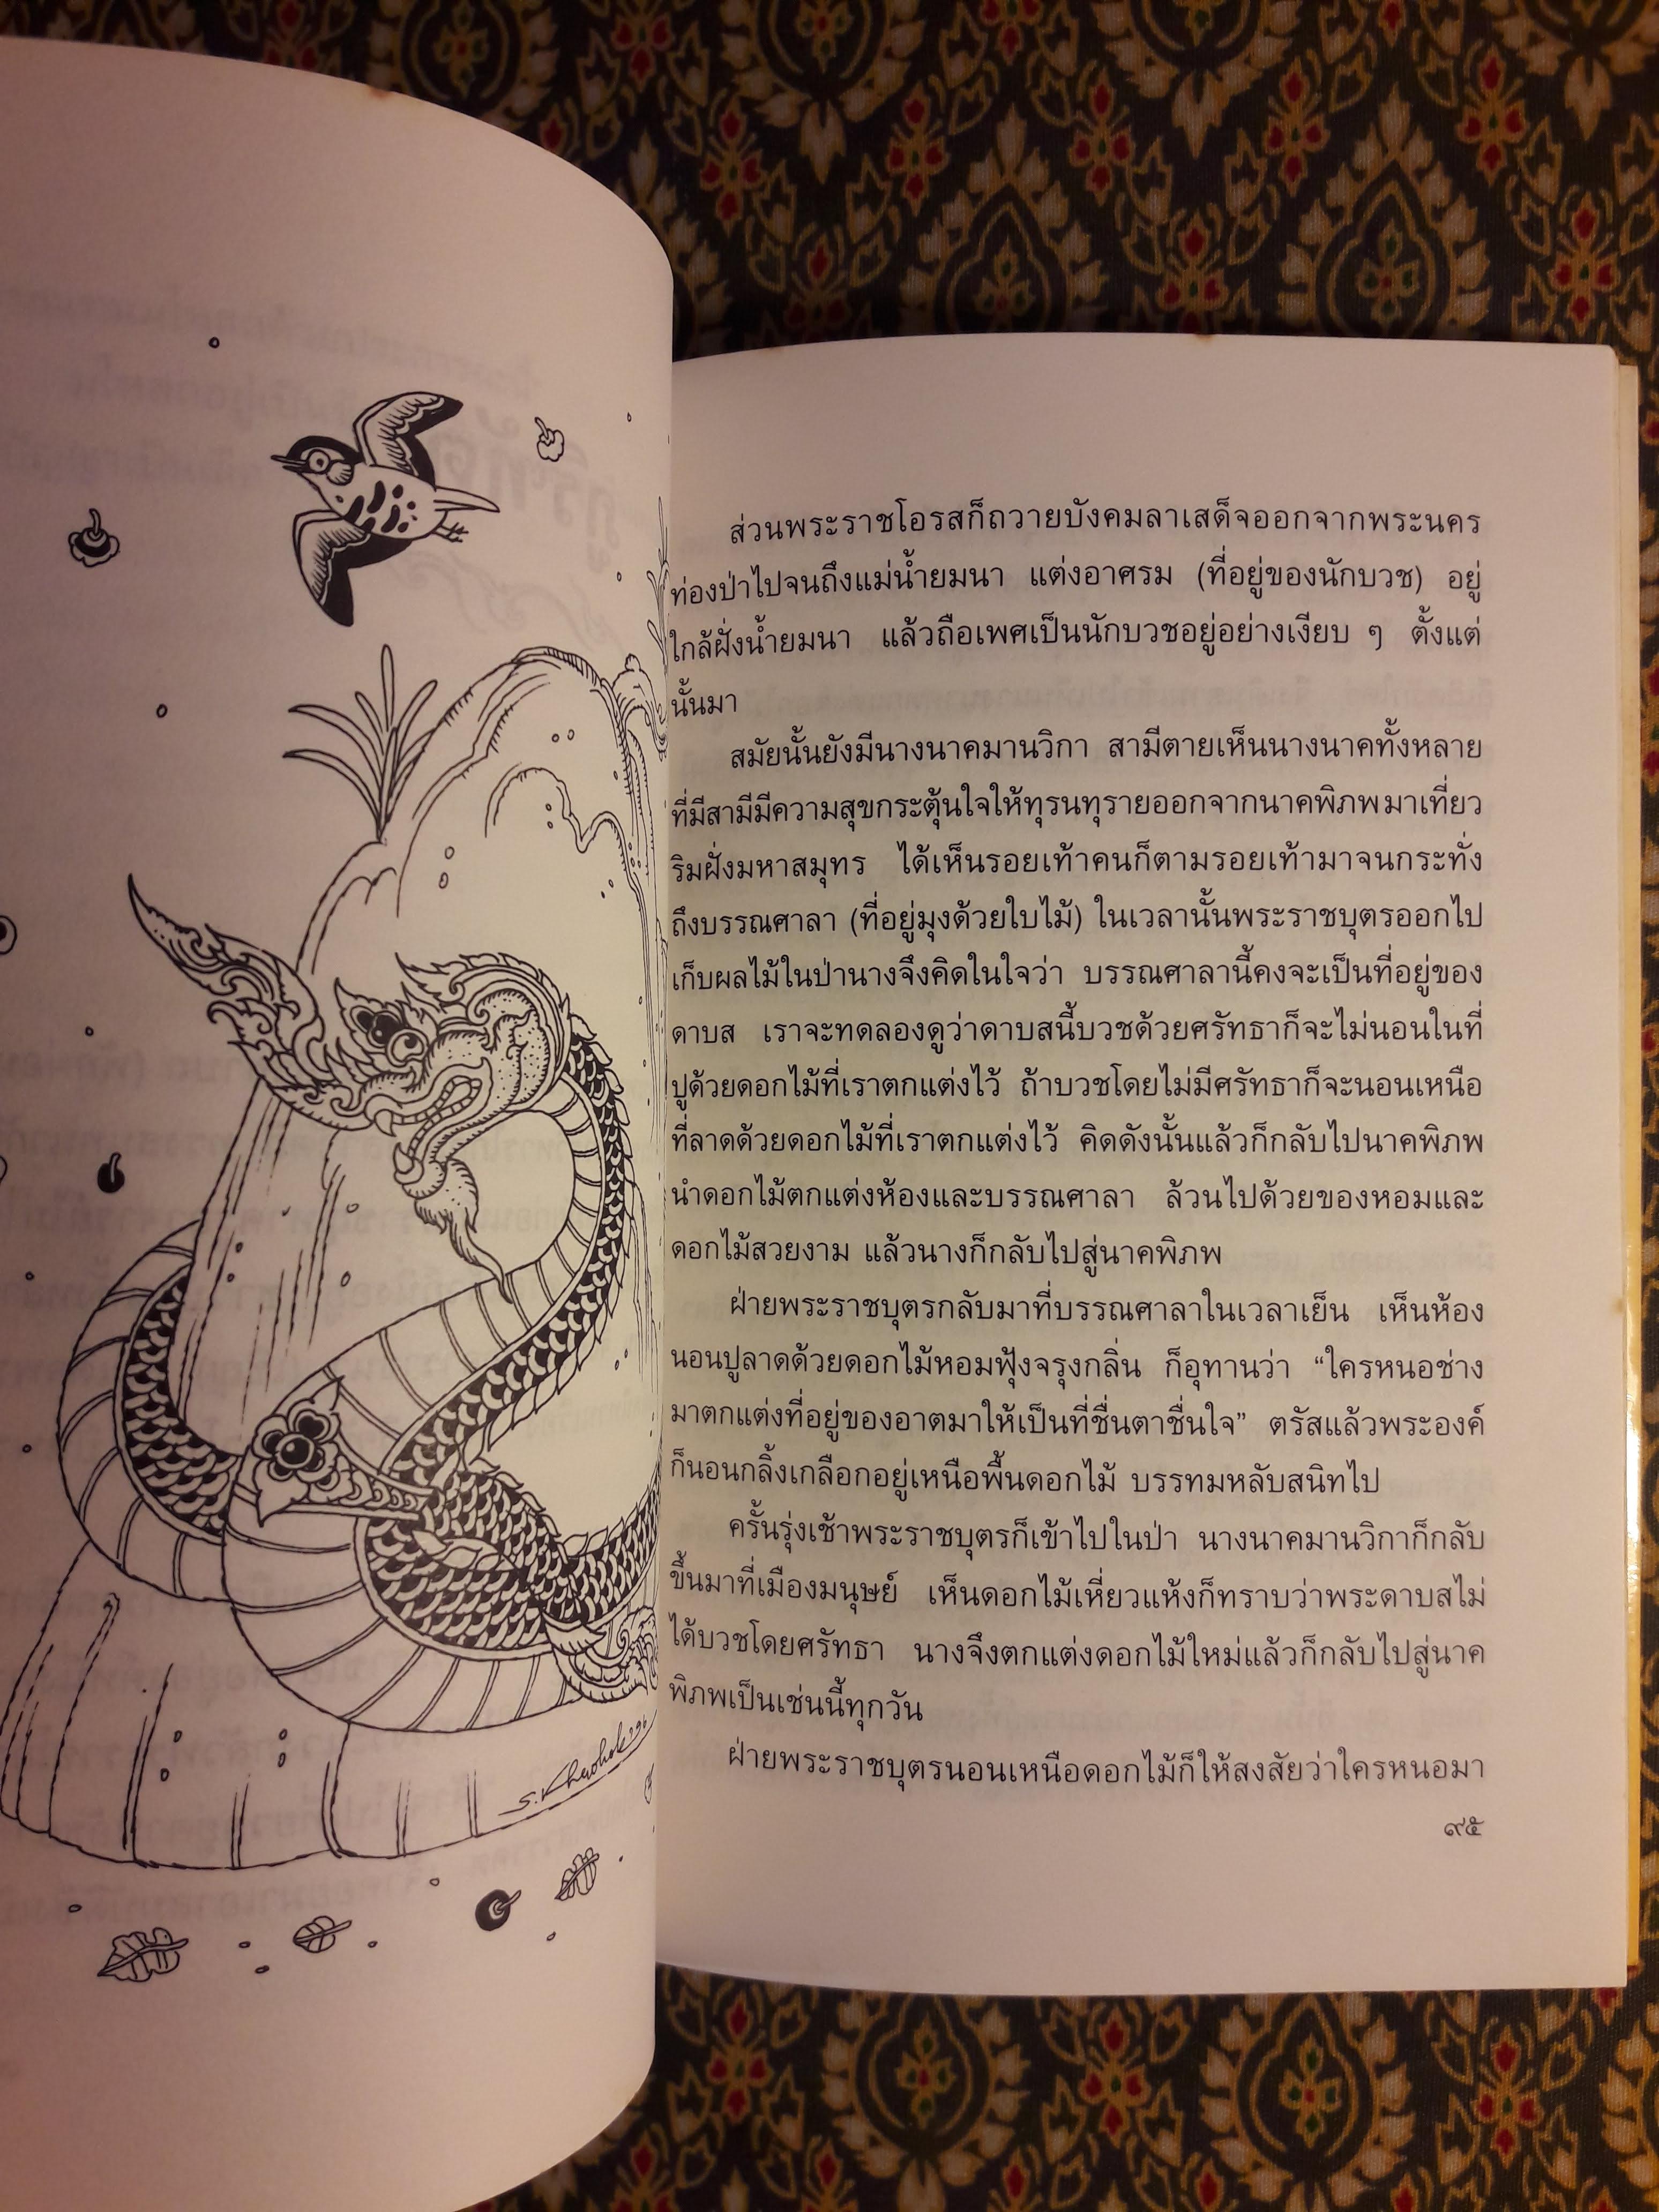 S. Khaohok '36
ส่วนพระราชโอรสก็ถวายบังคมลาเสด็จออกจากพระนคร
ท่องป่าไปจนถึงแม่น้ำยมนา แต่งอาศรม (ที่อยู่ของนักบวช) อยู่
ใกล้ฝั่งน้ำยมนา แล้วถือเพศเป็นนักบวชอยู่อย่างเงียบ ๆ ตั้งแต่
นั้นมา
สมัยนั้นยังมีนางนาคมานวิกา สามีตายเห็นนางนาคทั้งหลาย
ที่มีสามีมีความสุขกระตุ้นใจให้ทุรนทุรายออกจากนาคพิภพมาเที่ยว
ริมฝั่งมหาสมุทร ได้เห็นรอยเท้าคนก็ตามรอยเท้ามาจนกระทั่ง
ถึงบรรณศาลา (ที่อยู่มุงด้วยใบไม้) ในเวลานั้นพระราชบุตรออกไป
เก็บผลไม้ในป่านางจึงคิดในใจว่า บรรณศาลานี้คงจะเป็นที่อยู่ของ
ดาบส เราจะทดลองดูว่าดาบสนี้บวชด้วยศรัทธาก็จะไม่นอนในที่
ปูด้วยดอกไม้ที่เราตกแต่งไว้ ถ้าบวชโดยไม่มีศรัทธาก็จะนอนเหนือ
ที่ลาดด้วยดอกไม้ที่เราตกแต่งไว้ คิดดังนั้นแล้วก็กลับไปนาคพิภพ
นำดอกไม้ตกแต่งห้องและบรรณศาลา ล้วนไปด้วยของหอมและ
ดอกไม้สวยงาม แล้วนางก็กลับไปสู่นาคพิภพ
ฝ่ายพระราชบุตรกลับมาที่บรรณศาลาในเวลาเย็น เห็นห้อง
นอนปูลาดด้วยดอกไม้หอมฟุ้งจรุงกลิ่น ก็อุทานว่า “ใครหนอช่าง
มาตกแต่งที่อยู่ของอาตมาให้เป็นที่ชื่นตาชื่นใจ” ตรัสแล้วพระองค์
ก็นอนกลิ้งเกลือกอยู่เหนือพื้นดอกไม้ บรรทมหลับสนิทไป
ครั้นรุ่งเช้าพระราชบุตรก็เข้าไปในป่า นางนาคมานวิกาก็กลับ
ขึ้นมาที่เมืองมนุษย์ เห็นดอกไม้เหี่ยวแห้งก็ทราบว่าพระดาบสไม่
ได้บวชโดยศรัทธา นางจึงตกแต่งดอกไม้ใหม่แล้วก็กลับไปสู่นาค
พิภพเป็นเช่นนี้ทุกวัน
ฝ่ายพระราชบุตรนอนเหนือดอกไม้ก็ให้สงสัยว่าใครหนอมา
๙๕